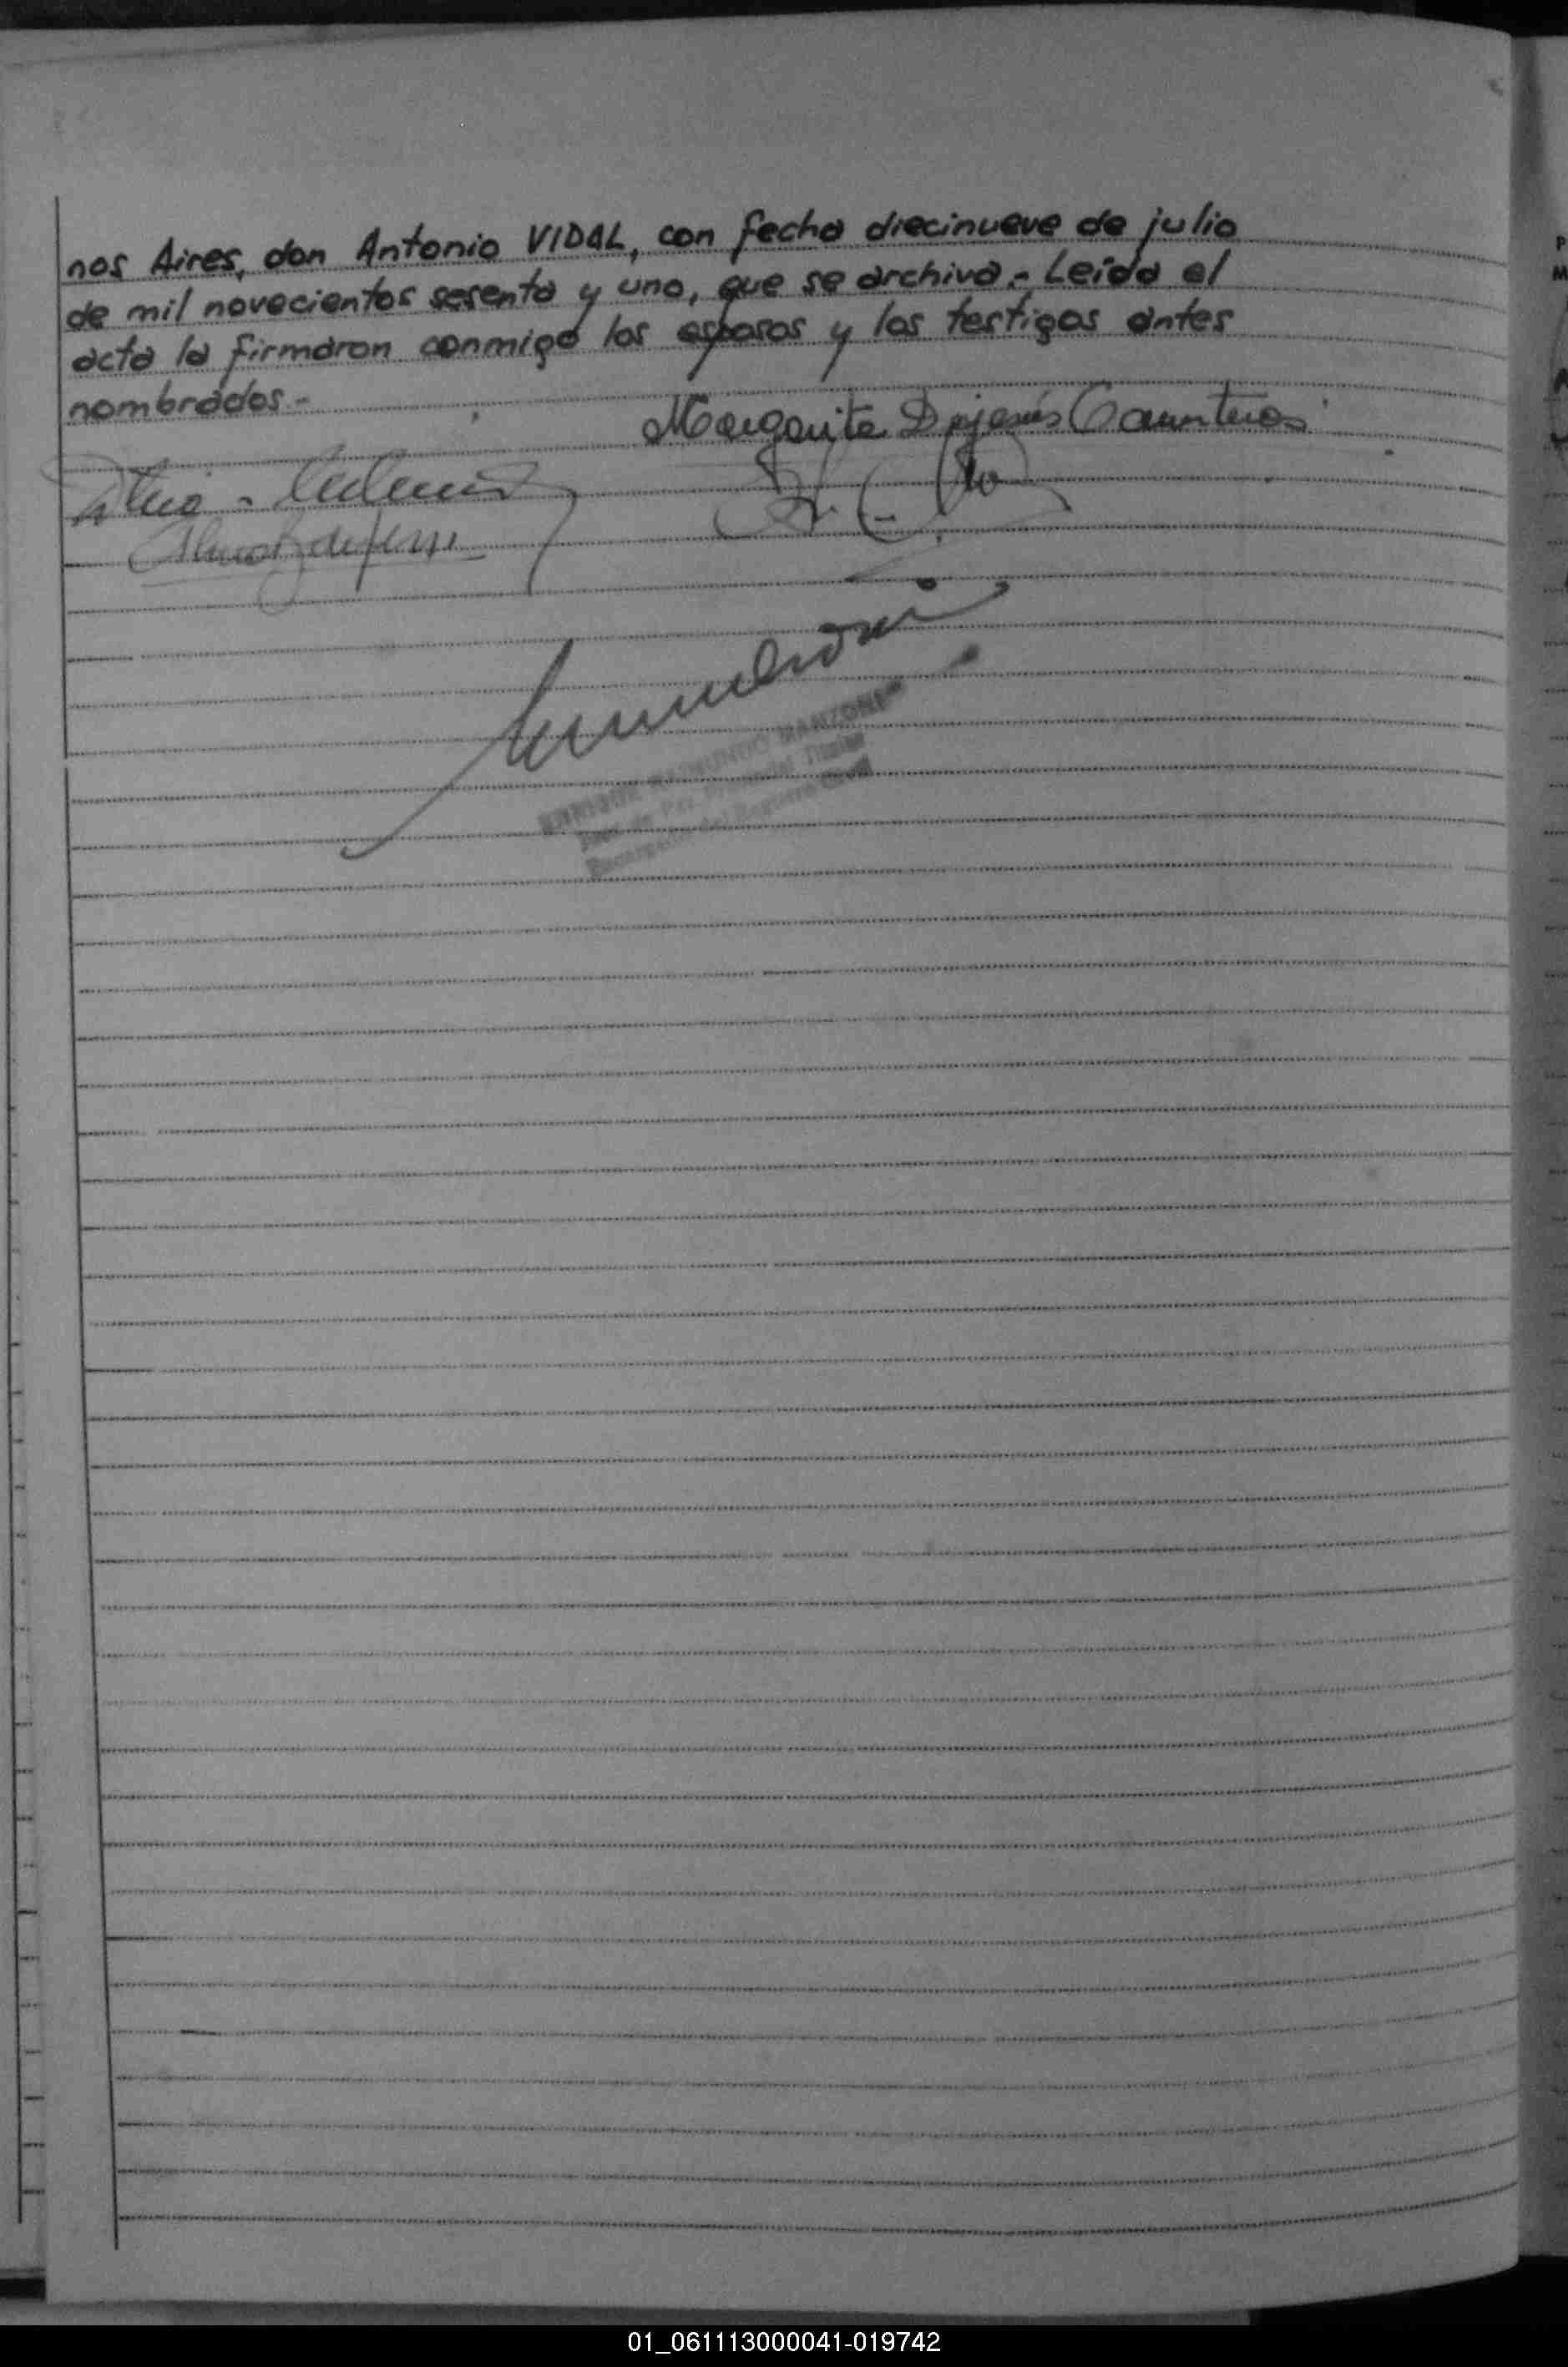 nos Aires, don Antonio VIDAL, con fecha diecinueve de julio
de mil novecientos sesenta y uno, que se archiva.- Leída el
acta la firmaron conmigo los esposos y los testigos antes
nombrados.-
Margarita Dejesús
RAIMUNDO MANZONE
Juez de Paz Titular
Encargado del Registro Civil
01_061113000041-019742